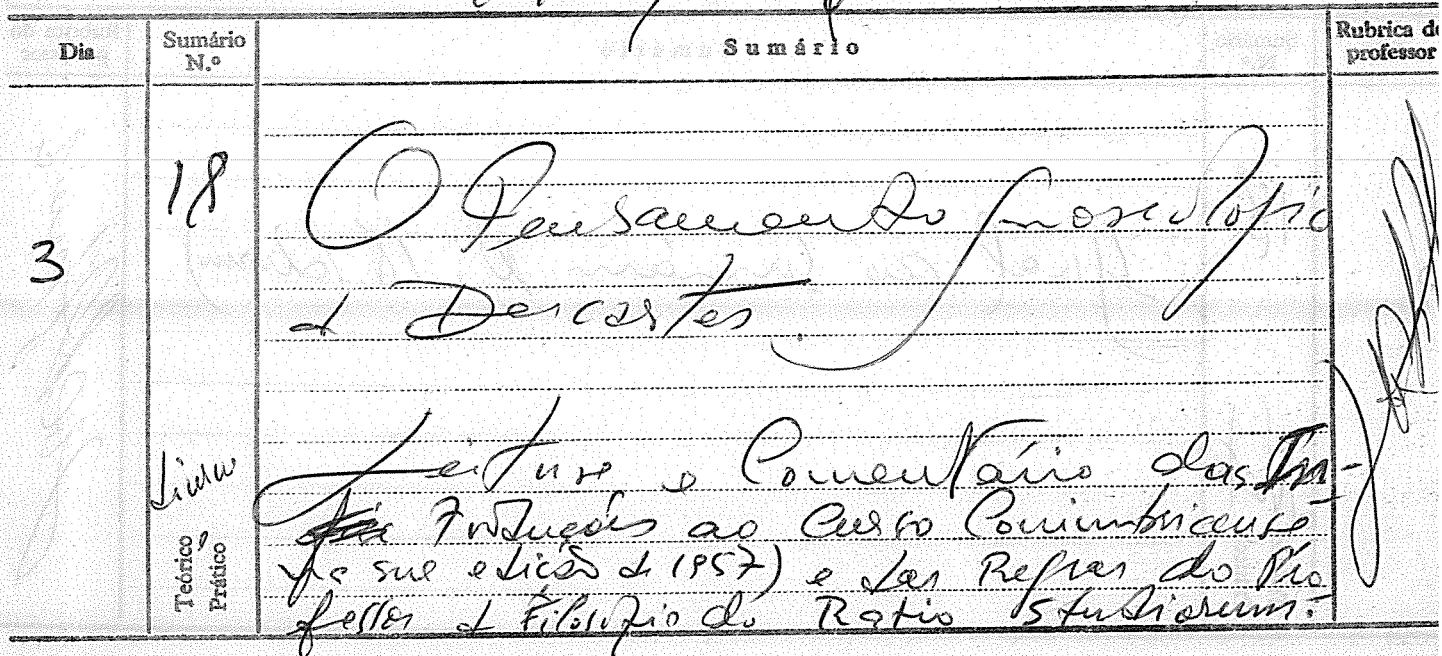 Dia
Sumário N.º
Sumário
Rubrica do professor
3
18
O Pensamento gnoseologico
de Descartes.
Teórico
Prático
Leitura e Comentário das In-
troduções ao Curso Conimbricense
(na sua edição de 1957) e das Regras do Pro
fessor de Filosofia do Ratio Studiorum.